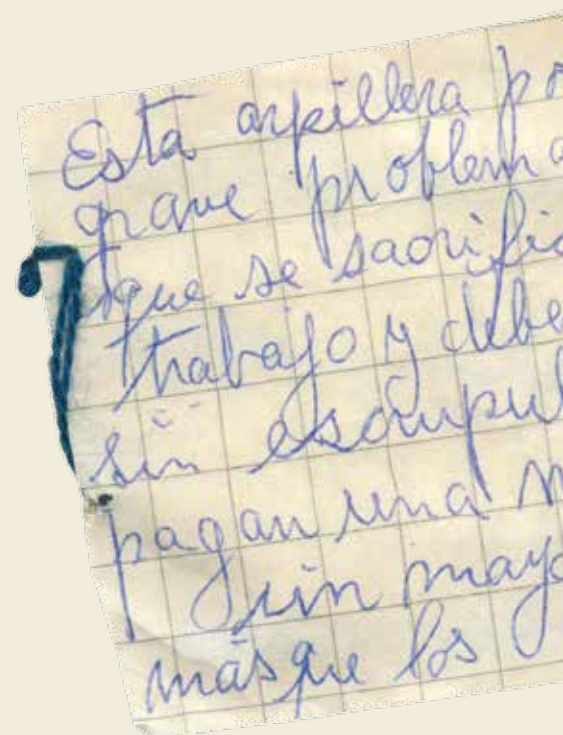 Esta arpillera po
grave problema
que se sacrific
trabajo y debe
sin escrupul
pagan una m
sin mayo
más que los